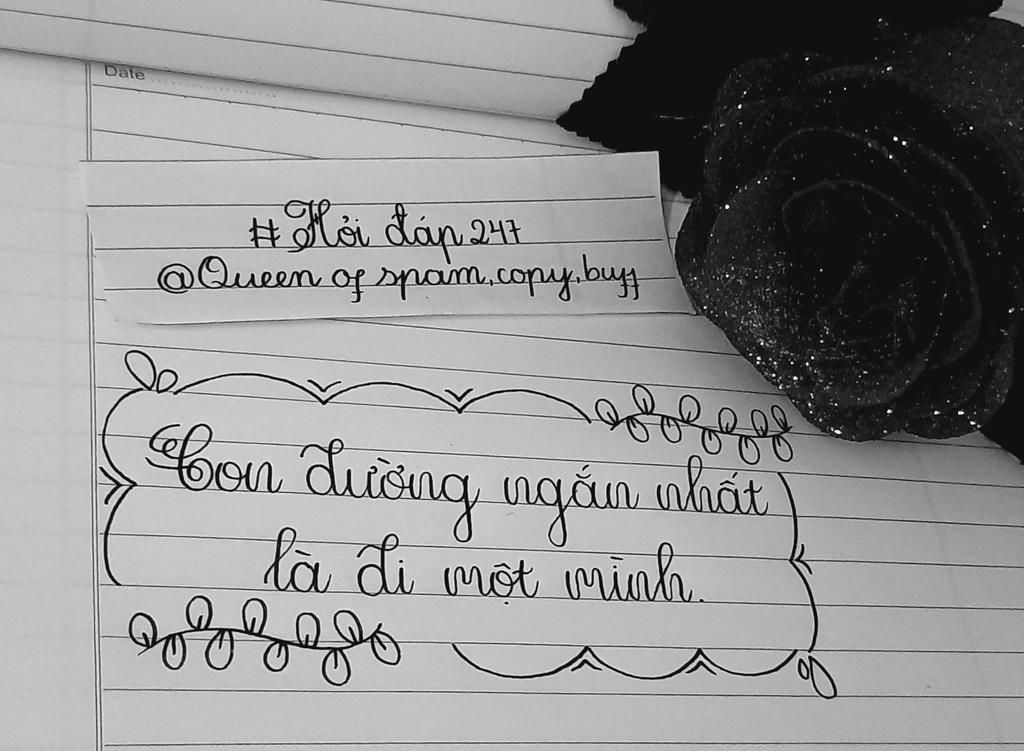 Date
# Hỏi đáp 247
@Queen of spam, copy, buff
Con đường ngắn nhất
là đi một mình.